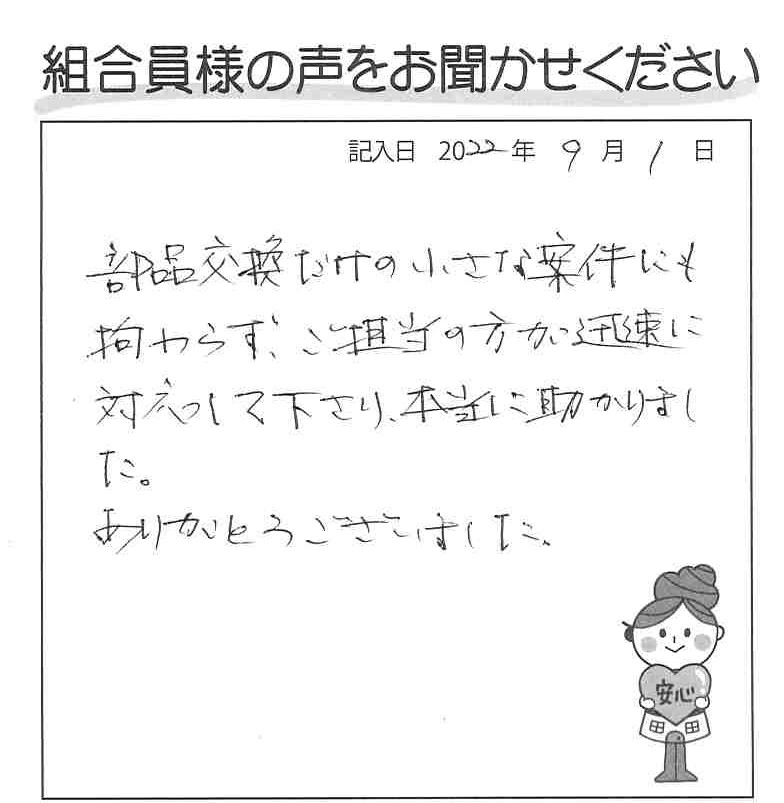 組合員様の声をお聞かせください
記入日 2022年 9月 1日
部品交換だけの小さな案件にも
拘わらず、ご担当の方が迅速に
対応して下さり、本当に助かりまし
た。
ありがとうございました。
安心